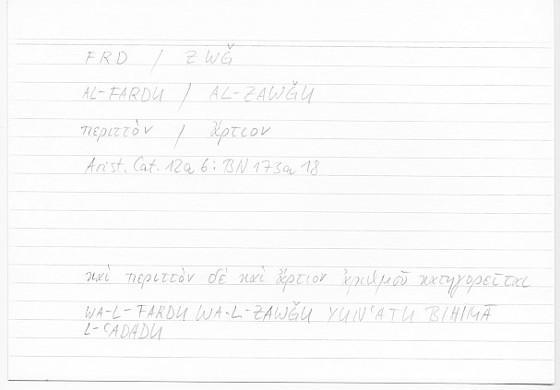 FRD / ZWǦ
AL-FARDU / AL-ZAWǦU
περιττὸν / ἄρτιον
Arist. Cat. 12a 6; BN 173a 18
καὶ περιττὸν δὲ καὶ ἄρτιον ἀριθμοῦ κατηγορεῖται
WA-L-FARDU WA-L-ZAWǦU YUNʿATU BIHIMĀ
L-ʿADADU